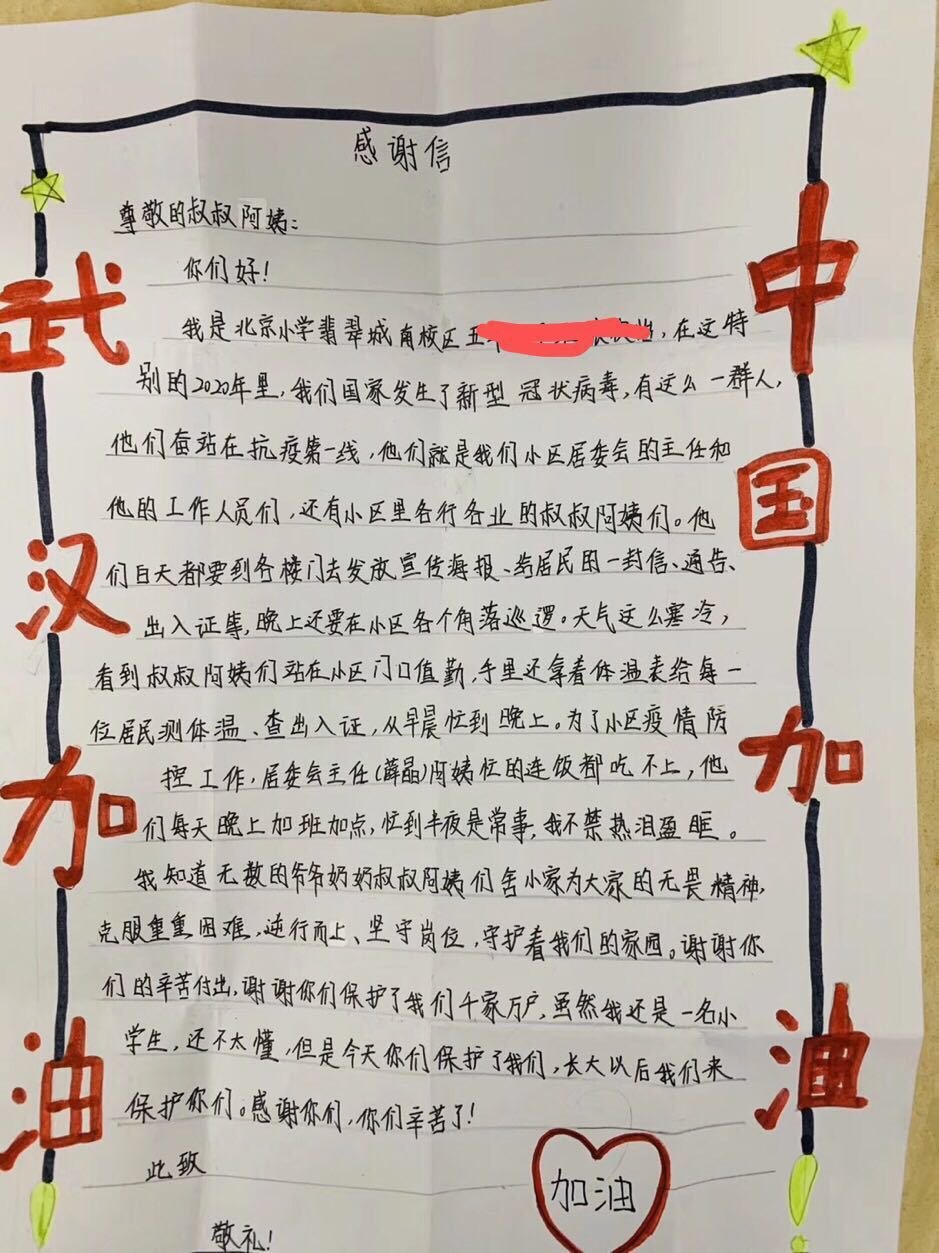 感谢信
尊敬的叔叔阿姨：
你们好！
我是北京小学翡翠城南校区五 ，在这特
别的2020年里，我们国家发生了新型冠状病毒，有这么一群人，
他们奋站在抗疫第一线，他们就是我们小区居委会的主任和
他的工作人员们，还有小区里各行各业的叔叔阿姨们。他
们白天都要到各楼门去发放宣传海报、给居民的一封信、通告、
出入证等，晚上还要在小区各个角落巡逻。天气这么寒冷，
看到叔叔阿姨们站在小区门口值勤，手里还拿着体温表给每一
位居民测体温、查出入证，从早晨忙到晚上。为了小区疫情防
控工作，居委会主任(薛晶)阿姨忙的连饭都吃不上，他
们每天晚上加班加点，忙到半夜是常事，我不禁热泪盈眶。
我知道无数的爷爷奶奶叔叔阿姨们舍小家为大家的无畏精神，
克服重重困难，逆行而上、坚守岗位，守护着我们的家园。谢谢你
们的辛苦付出，谢谢你们保护了我们千家万户，虽然我还是一名小
学生，还不太懂，但是今天你们保护了我们，长大以后我们来
保护你们。感谢你们，你们辛苦了！
此致
敬礼！
加油
武汉加油
中国加油